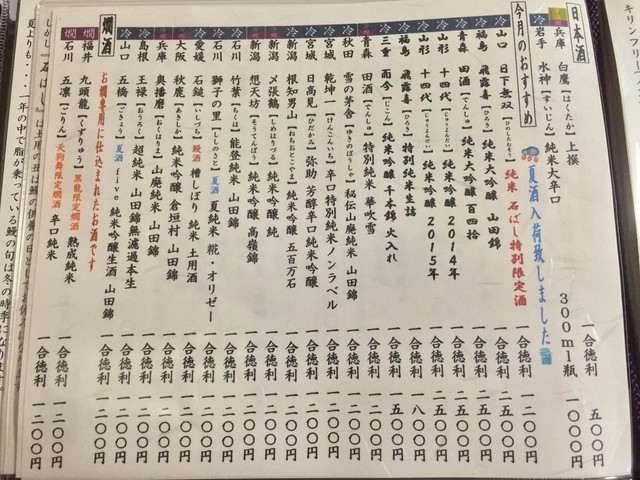 日本酒
兵庫 白鷹【はくたか】上撰 一合徳利 五〇〇円
冷 岩手 水神【すいじん】純米大辛口 300ml瓶 一〇〇〇円
今月のおすすめ 夏酒入荷致しました
冷 山口 日下無双【ひのしたむそう】純米 石ばし特別限定酒 一合徳利 一二〇〇円
冷 福島 飛露喜【ひろき】純米大吟醸 山田錦 一合徳利 一五〇〇円
冷 青森 田酒【でんしゅ】純米大吟醸 百四拾 一合徳利 二五〇〇円
冷 山形 十四代【じゅうよんだい】純米吟醸 2014年 一合徳利 二五〇〇円
冷 山形 十四代【じゅうよんだい】純米吟醸 2015年 一合徳利 一八〇〇円
冷 福島 飛露喜【ひろき】特別純米生詰 一合徳利 一五〇〇円
冷 三重 而今【じこん】純米吟醸 千本錦 火入れ 一合徳利 一五〇〇円
青森 田酒【でんしゅ】特別純米 華吹雪 一合徳利 一二〇〇円
冷 秋田 雪の茅舎【ゆきのぼうしゃ】秘伝山廃純米 山田錦 一合徳利 一二〇〇円
冷 宮城 乾坤一【けんこんいち】辛口特別純米ノンラベル 一合徳利 一二〇〇円
冷 宮城 日高見【ひだかみ】弥助 芳醇辛口純米吟醸 一合徳利 一二〇〇円
冷 新潟 根知男山【ねちおとこやま】純米吟醸 五百万石 一合徳利 一二〇〇円
冷 新潟 〆張鶴【しめはりつる】純米吟醸 純 一合徳利 一二〇〇円
冷 新潟 想天坊【そうてんぼう】純米吟醸 高嶺錦 一合徳利 一二〇〇円
冷 石川 竹葉【ちくは】能登純米 山田錦 一合徳利 一二〇〇円
冷 石川 獅子の里【ししのさと】夏酒 夏純米 糀・オリゼー 一合徳利 一二〇〇円
冷 愛媛 石鎚【いしづち】鰻酒 槽しぼり 純米 土用酒 一合徳利 一二〇〇円
大阪 秋鹿【あきしか】純米吟醸 倉垣村 山田錦 一合徳利 一二〇〇円
兵庫 奥播磨【おくはりま】山廃純米 山田錦 一合徳利 一二〇〇円
島根 王祿【おうろく】超純米 山田錦無濾過本生 一合徳利 一二〇〇円
冷 山口 五橋【ごきょう】夏酒 five 純米吟醸生酒 山田錦 一合徳利 一二〇〇円
燗酒 お燗専用に仕込まれたお酒です
燗 福井 九頭龍【くずりゅう】黒龍限定燗酒 熟成純米 一合徳利 一二〇〇円
燗 石川 五凛【ごりん】天狗舞限定燗酒 辛口純米 一合徳利 一二〇〇円
夏よりも・・・一年の中で脂が乗っている鰻の旬は冬の時季になります
キリンフリー